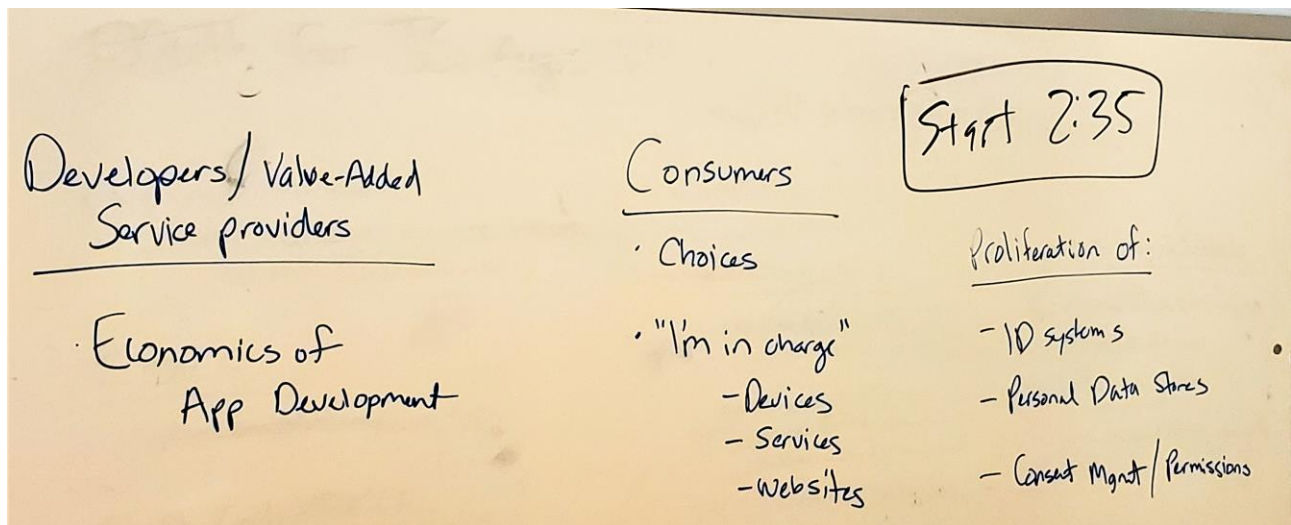 Developers/ Value-Added
Service providers
· Economics of
App Development
Consumers
· Choices
· "I'm in charge"
- Devices
- Services
- websites
Start 2:35
Proliferation of:
- ID systems
- Personal Data Stores
- Consent Mgmt/Permissions